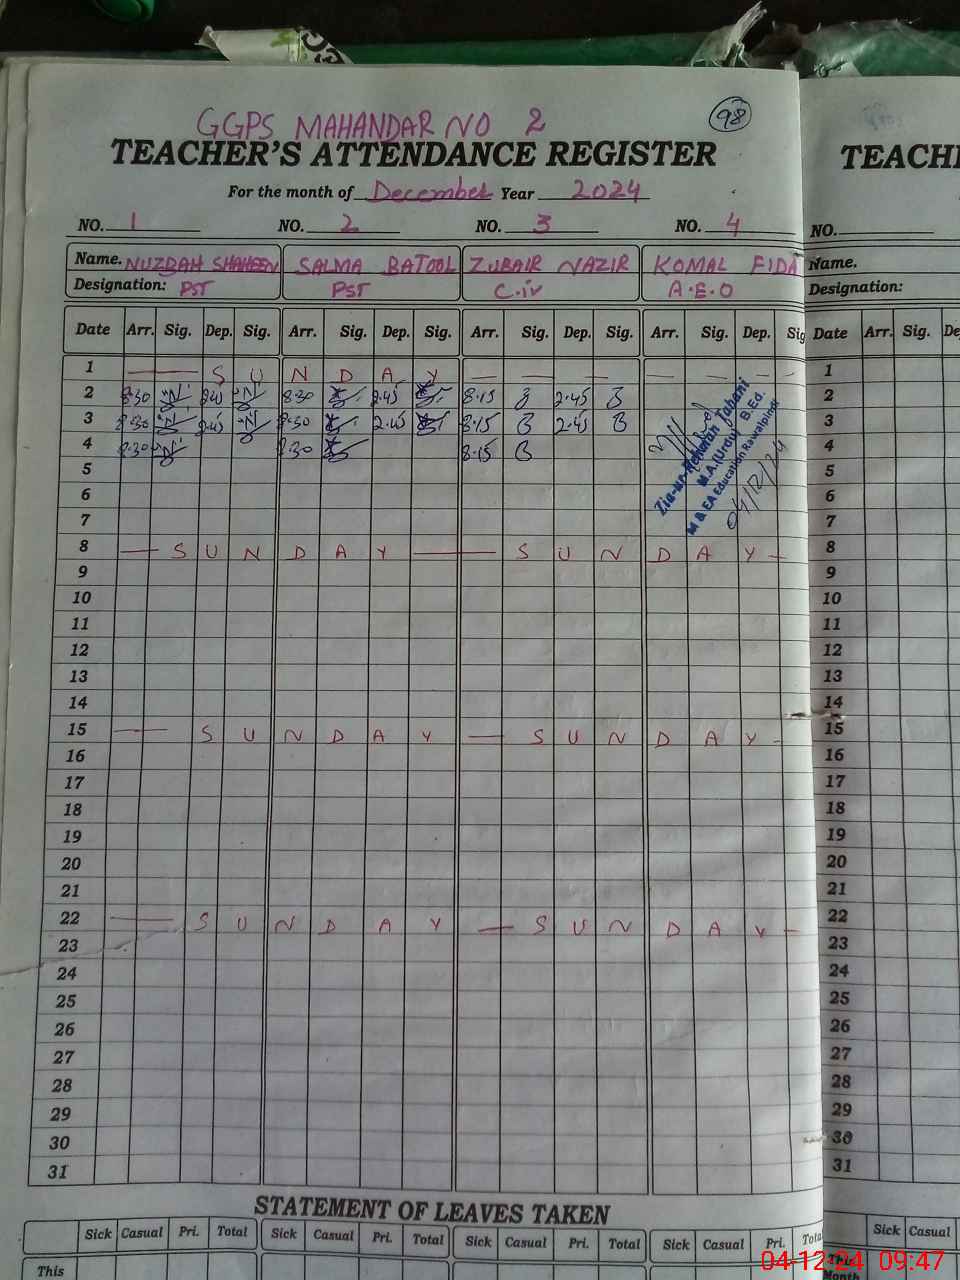 GGPS MAHANDAR NO 2
98
TEACHER'S ATTENDANCE REGISTER
For the month of December Year 2024
NO. 1 NO. 2 NO. 3 NO. 4
Name. NUZDAH SHAHEEN SALMA BATOOL ZUBAIR NAZIR KOMAL FIDA
Designation: PST PST C.iv A.E.O
Date Arr. Sig. Dep. Sig. Arr. Sig. Dep. Sig. Arr. Sig. Dep. Sig. Arr. Sig. Dep. Sig
1 — S U N D A Y — — — — — — — —
2 8.30 2.45 8.30 2.45 8.15 2.45
3 8.30 2.45 8.30 2.45 8.15 2.45
4 8.30 8.30 8.15
Zia-ur-Rehman Jabani
M.A.(Urdu) B.Ed.
M & EA Education Rawalpindi
04/12/24
5
6
7
8 — S U N D A Y — S U N D A Y —
9
10
11
12
13
14
15 — S U N D A Y — S U N D A Y -
16
17
18
19
20
21
22 — S U N D A Y — S U N D A Y —
23
24
25
26
27
28
29
30
31
STATEMENT OF LEAVES TAKEN
Sick Casual Pri. Total Sick Casual Pri. Total Sick Casual Pri. Total Sick Casual Pri. Total
This
TEACH
NO.
Name.
Designation:
Date Arr. Sig. De
1
2
3
4
5
6
7
8
9
10
11
12
13
14
15
16
17
18
19
20
21
22
23
24
25
26
27
28
29
30
31
Sick Casual
This
Month
04-12-24 09:47